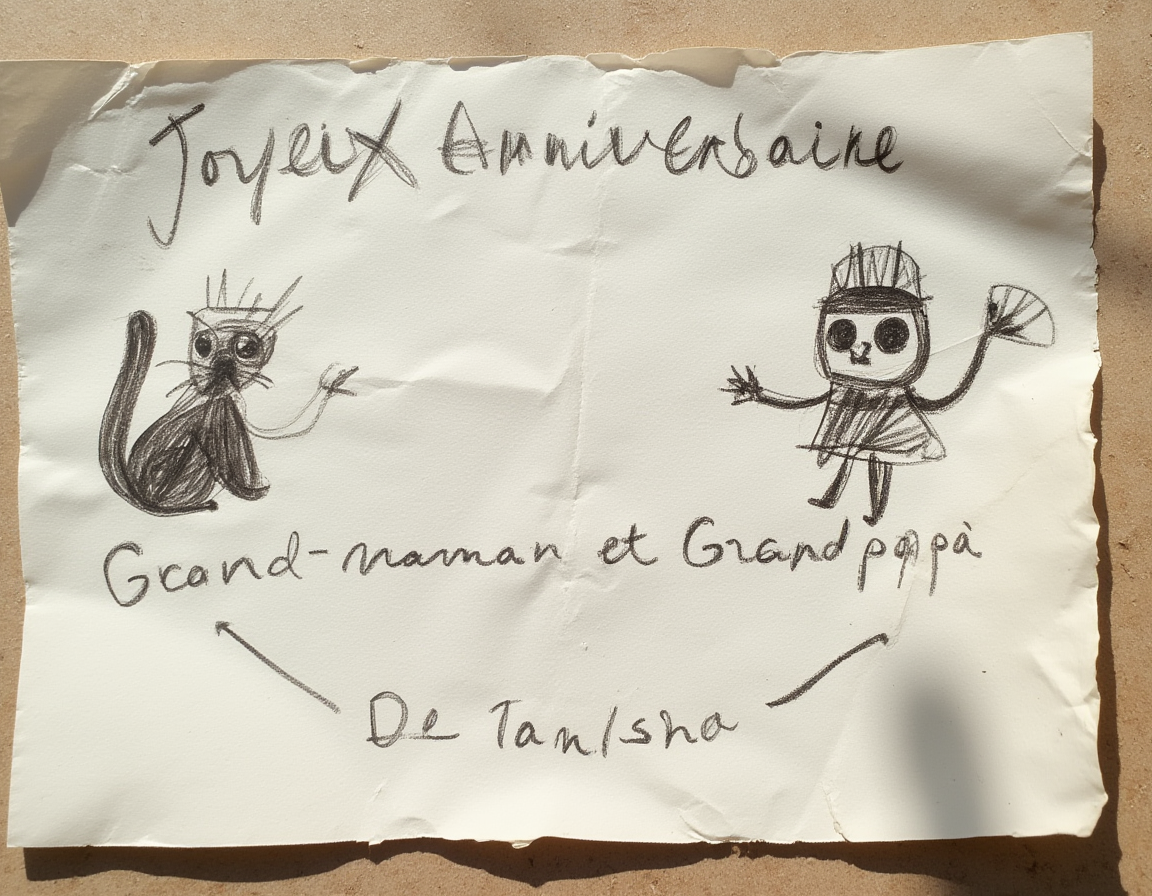 Joyeux Anniversaire
Grand-maman et Grand papà
De Tanisha